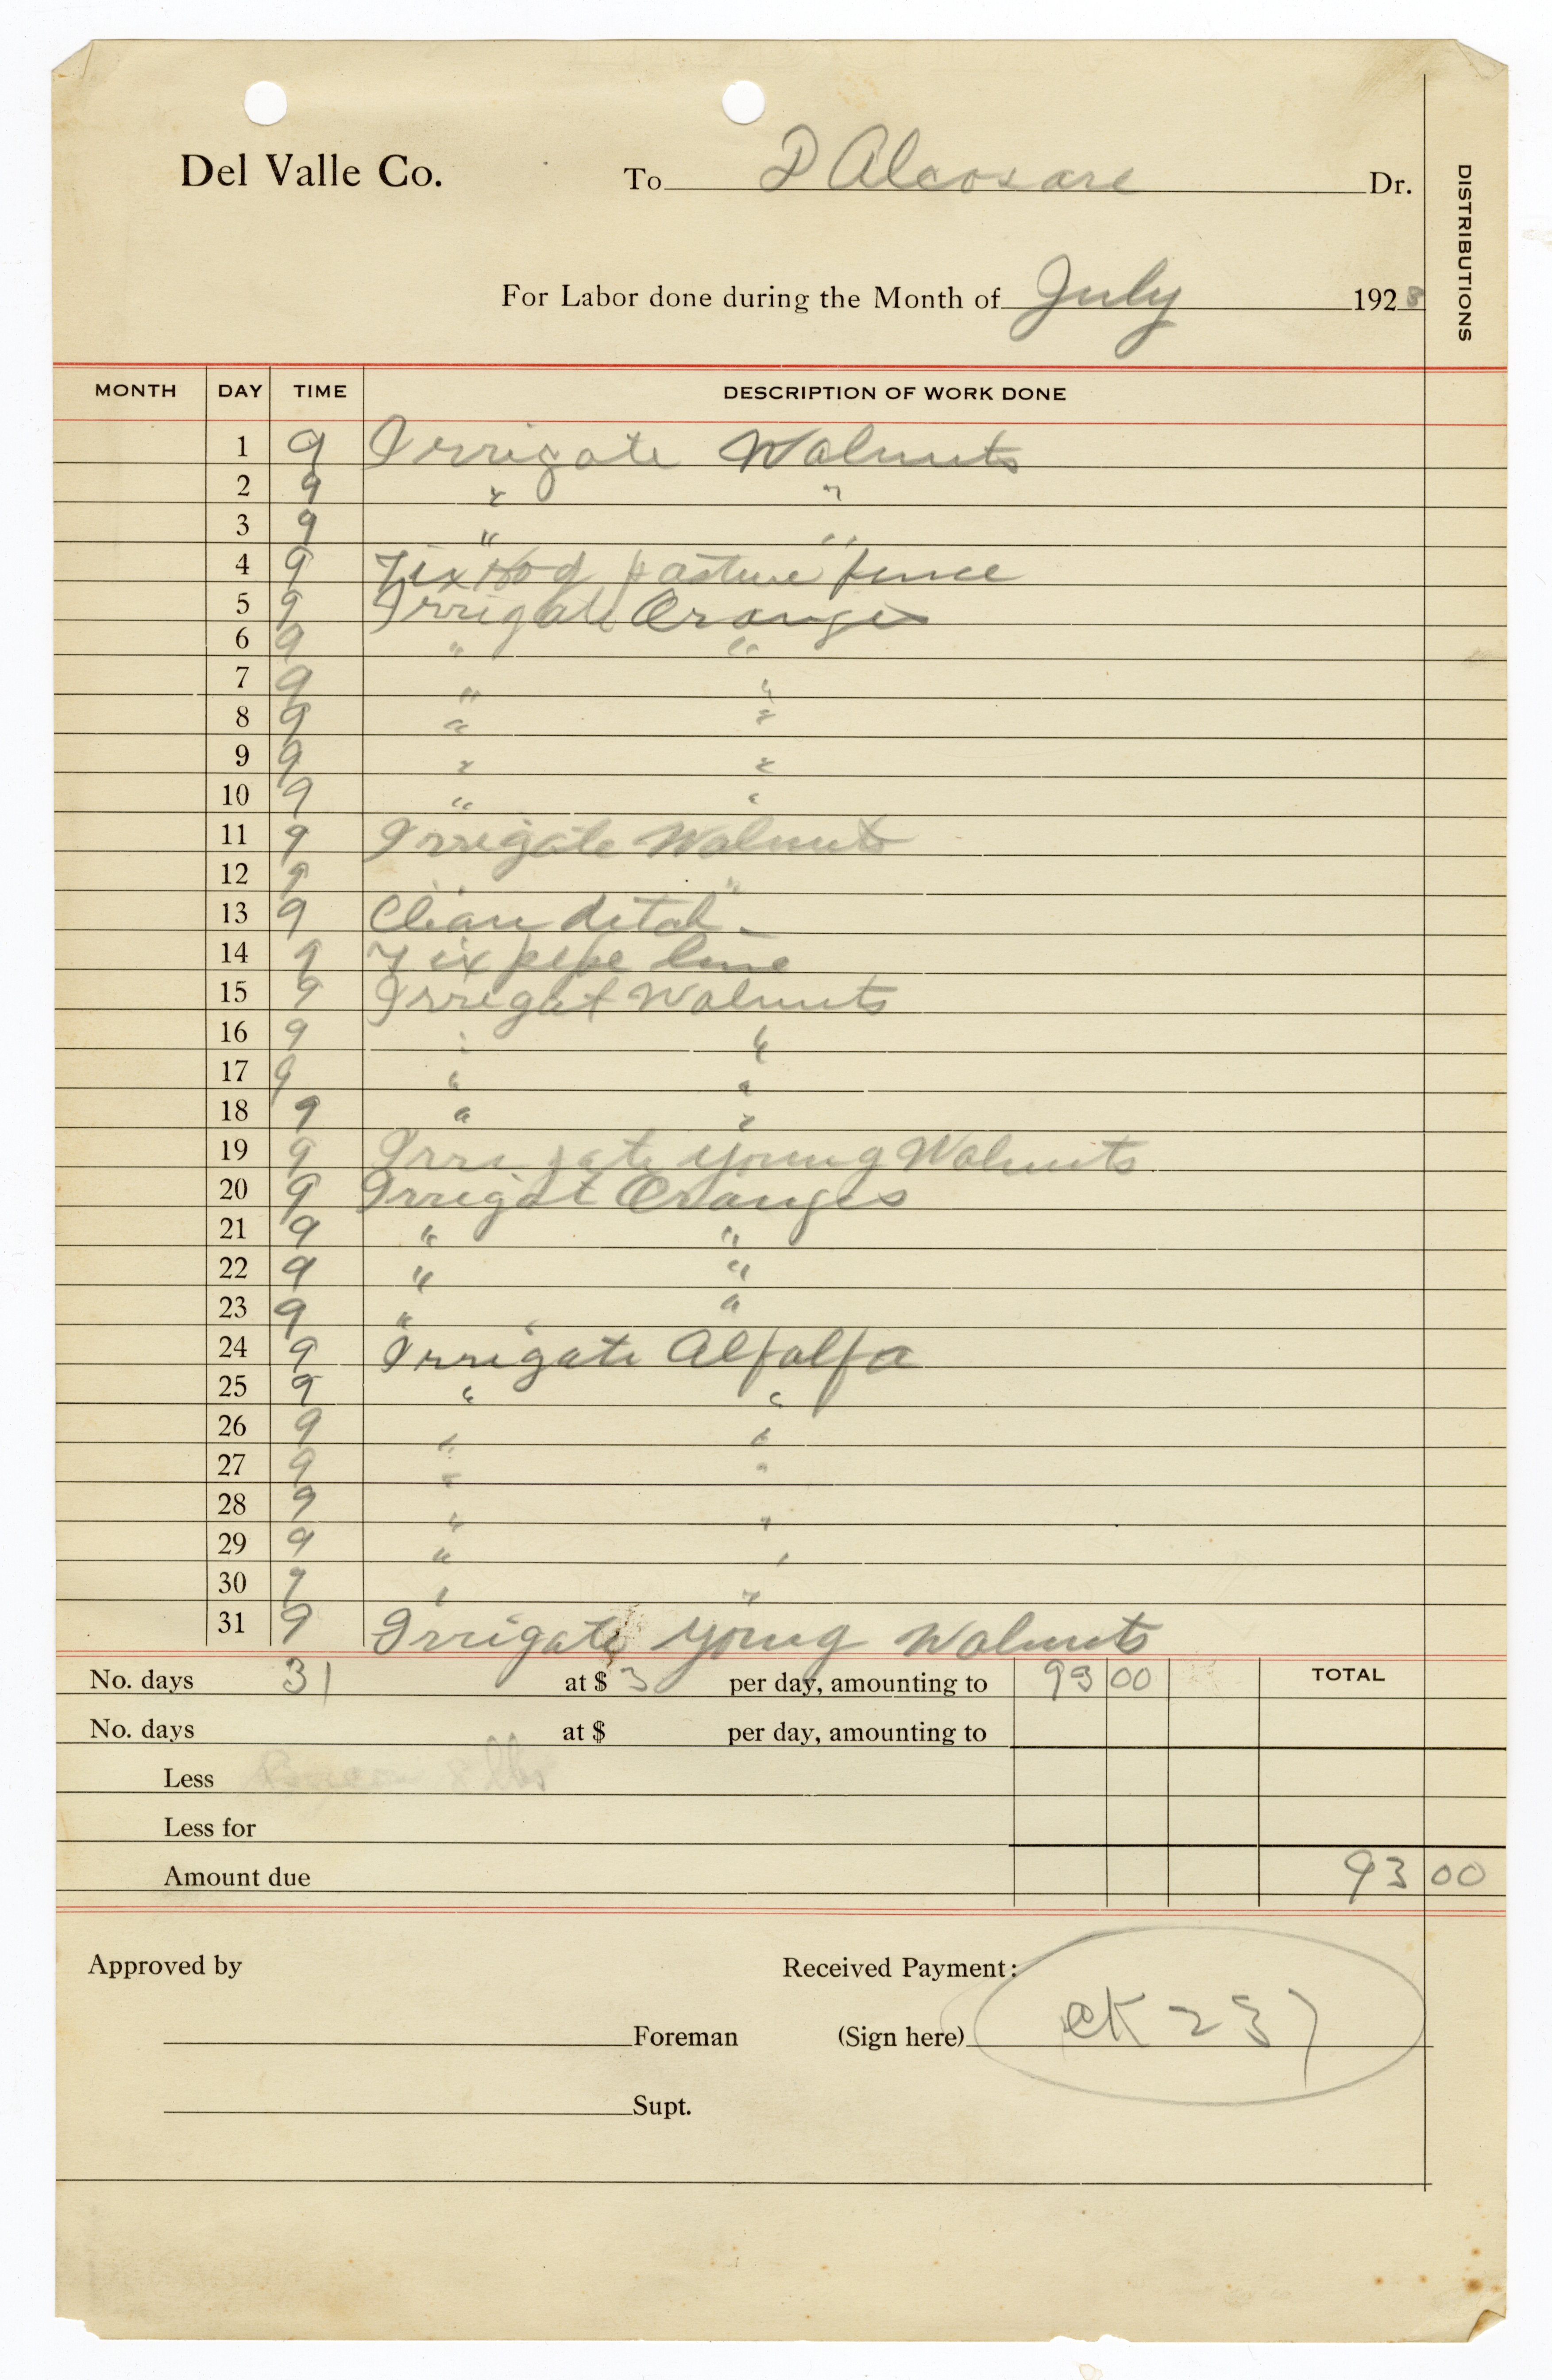 Del Valle Co. To D Alcosare Dr.
DISTRIBUTIONS
For Labor done during the Month of July 1928
MONTH DAY TIME DESCRIPTION OF WORK DONE
1 9 Irrigate Walnuts
2 9 " "
3 9 " "
4 9 Fix Hog pasture fence
5 9 Irrigate Oranges
6 9 " "
7 9 " "
8 9 " "
9 9 " "
10 9 " "
11 9 Irrigate Walnuts
12 9 " "
13 9 Clean ditch
14 9 Fix pipe line
15 9 Irrigat Walnuts
16 9 " "
17 9 " "
18 9 " "
19 9 Irrigate young Walnuts
20 9 Irrigat Oranges
21 9 " "
22 9 " "
23 9 " "
24 9 Irrigate Alfalfa
25 9 " "
26 9 " "
27 9 " "
28 9 " "
29 9 " "
30 9 " "
31 9 Irrigate young Walnuts
No. days 31 at $ 3 per day, amounting to 93 00 TOTAL
No. days at $ per day, amounting to
Less 8 lbs
Less for
Amount due 93 00
Approved by Received Payment:
Foreman (Sign here) CK 237
Supt.